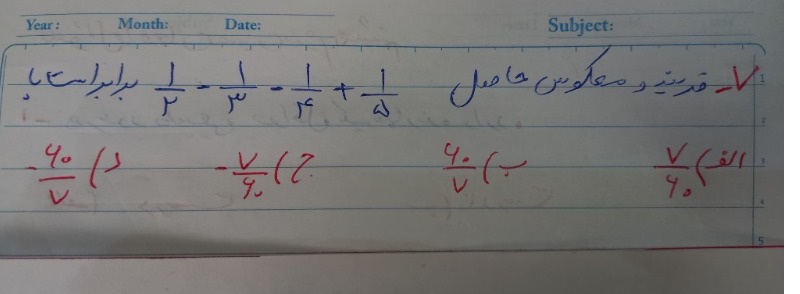 Year: Month: Date: Subject:
۷- قرینه و معکوس حاصل ۱/۲ - ۱/۳ - ۱/۴ + ۱/۵ برابر است با
الف) ۷/۶۰ ب) ۶۰/۷ ج) -۷/۶۰ د) -۶۰/۷
1
2
3
4
5